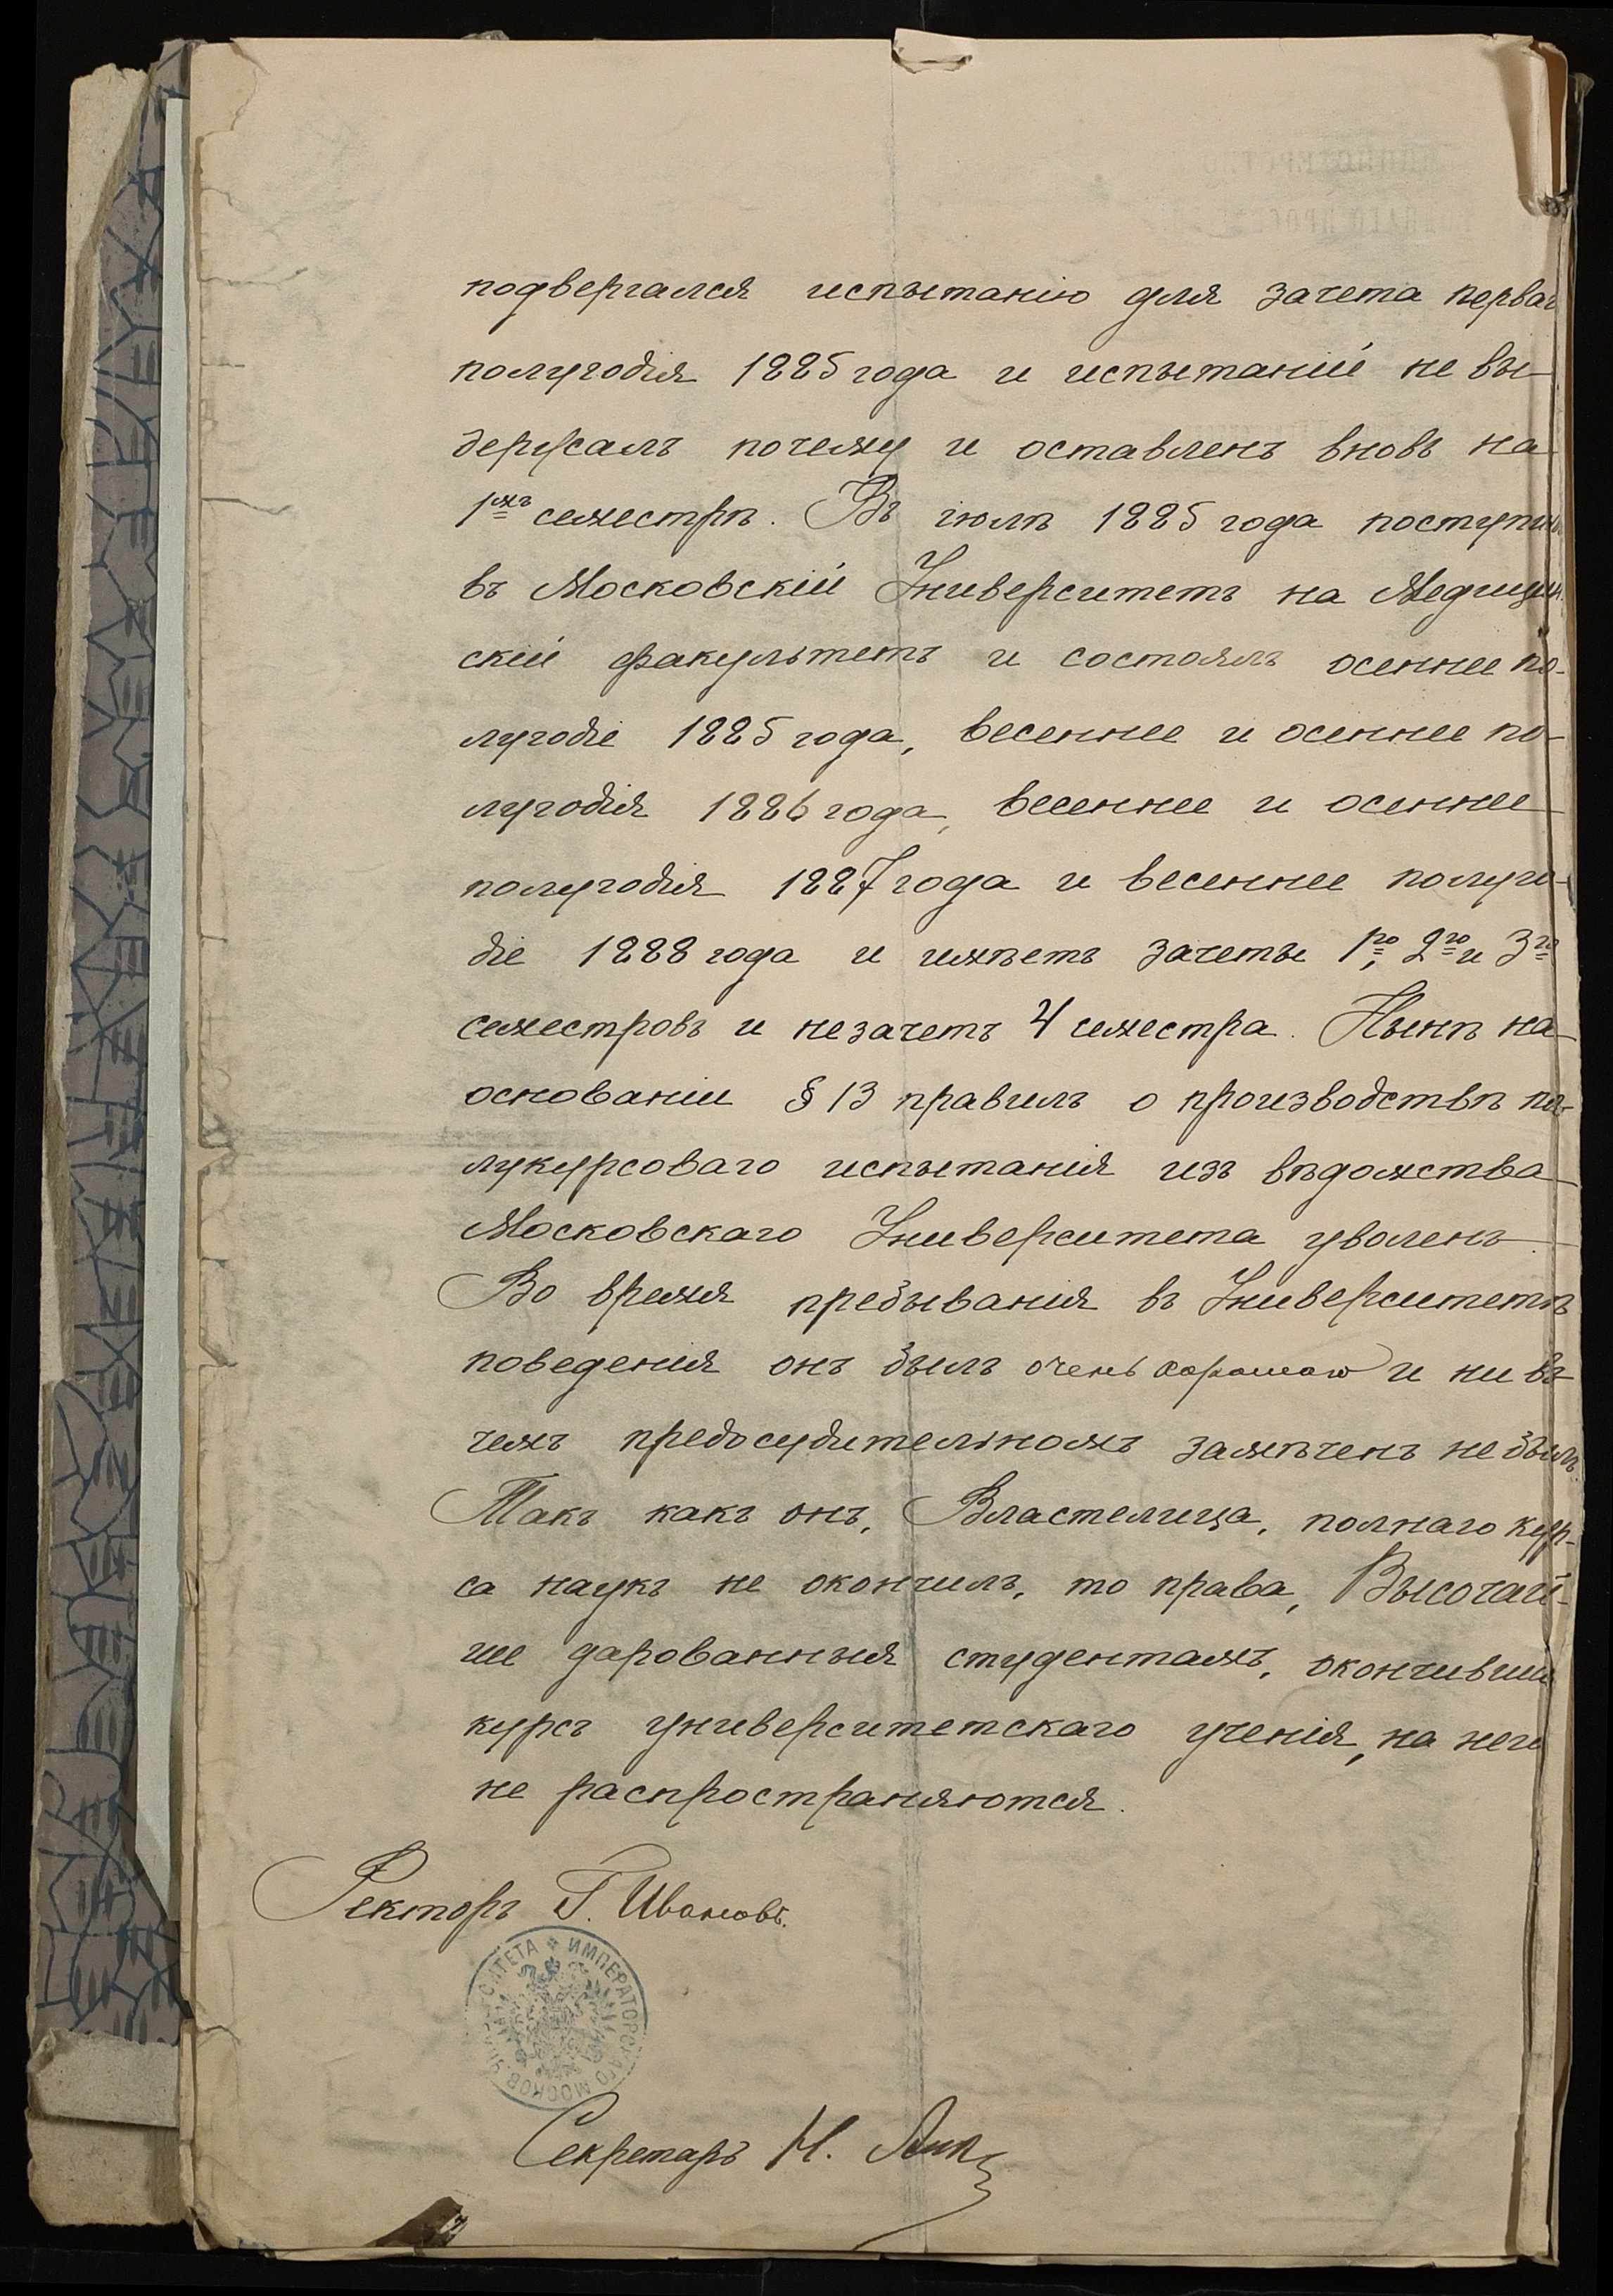 подвергался испытанію для зачета перваг
полугодія 1885 года и испытаній не вы-
держалъ почему и оставленъ вновь на
1мъ семестрѣ. Въ іюлѣ 1885 года поступилъ
въ Московскій Университетъ на Медицин.
скій факультетъ и состоялъ осеннее по-
лугодіе 1885 года, весеннее и осеннее по-
лугодія 1886 года, весеннее и осеннее
полугодія 1887 года и весеннее полуго-
діе 1888 года и имѣетъ зачеты 1го, 2го и 3го
семестровъ и незачетъ 4 семестра. Нынѣ на
основаніи § 13 правилъ о производствѣ по-
лукурсоваго испытанія изъ вѣдомства
Московскаго Университета уволенъ.
Во время пребыванія въ Университетѣ
поведенія онъ былъ очень хорошаго и ни въ
чемъ предосудительномъ замѣченъ не былъ.
Такъ какъ онъ, Властелица, полнаго кур-
са наукъ не окончилъ, то права, Высочай-
ше дарованныя студентамъ, окончивши
курсъ университетскаго ученія, на него
не распространяются.
Ректоръ Г. Ивановъ.
ИМПЕРАТОРСКАГО МОСКОВ. УНИВЕРСИТЕТА
Секретарь Н.